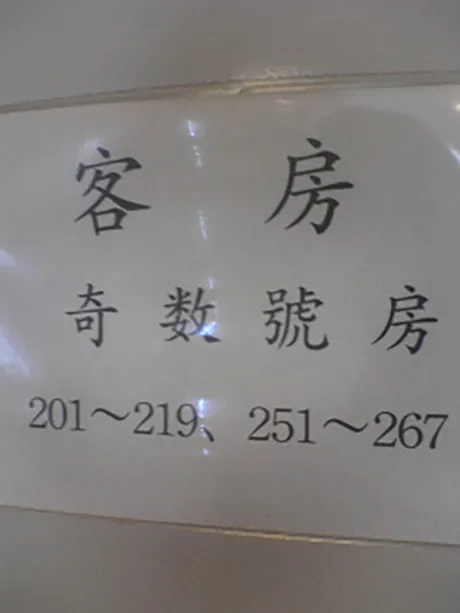 客房
奇数號房
201～219、251～267